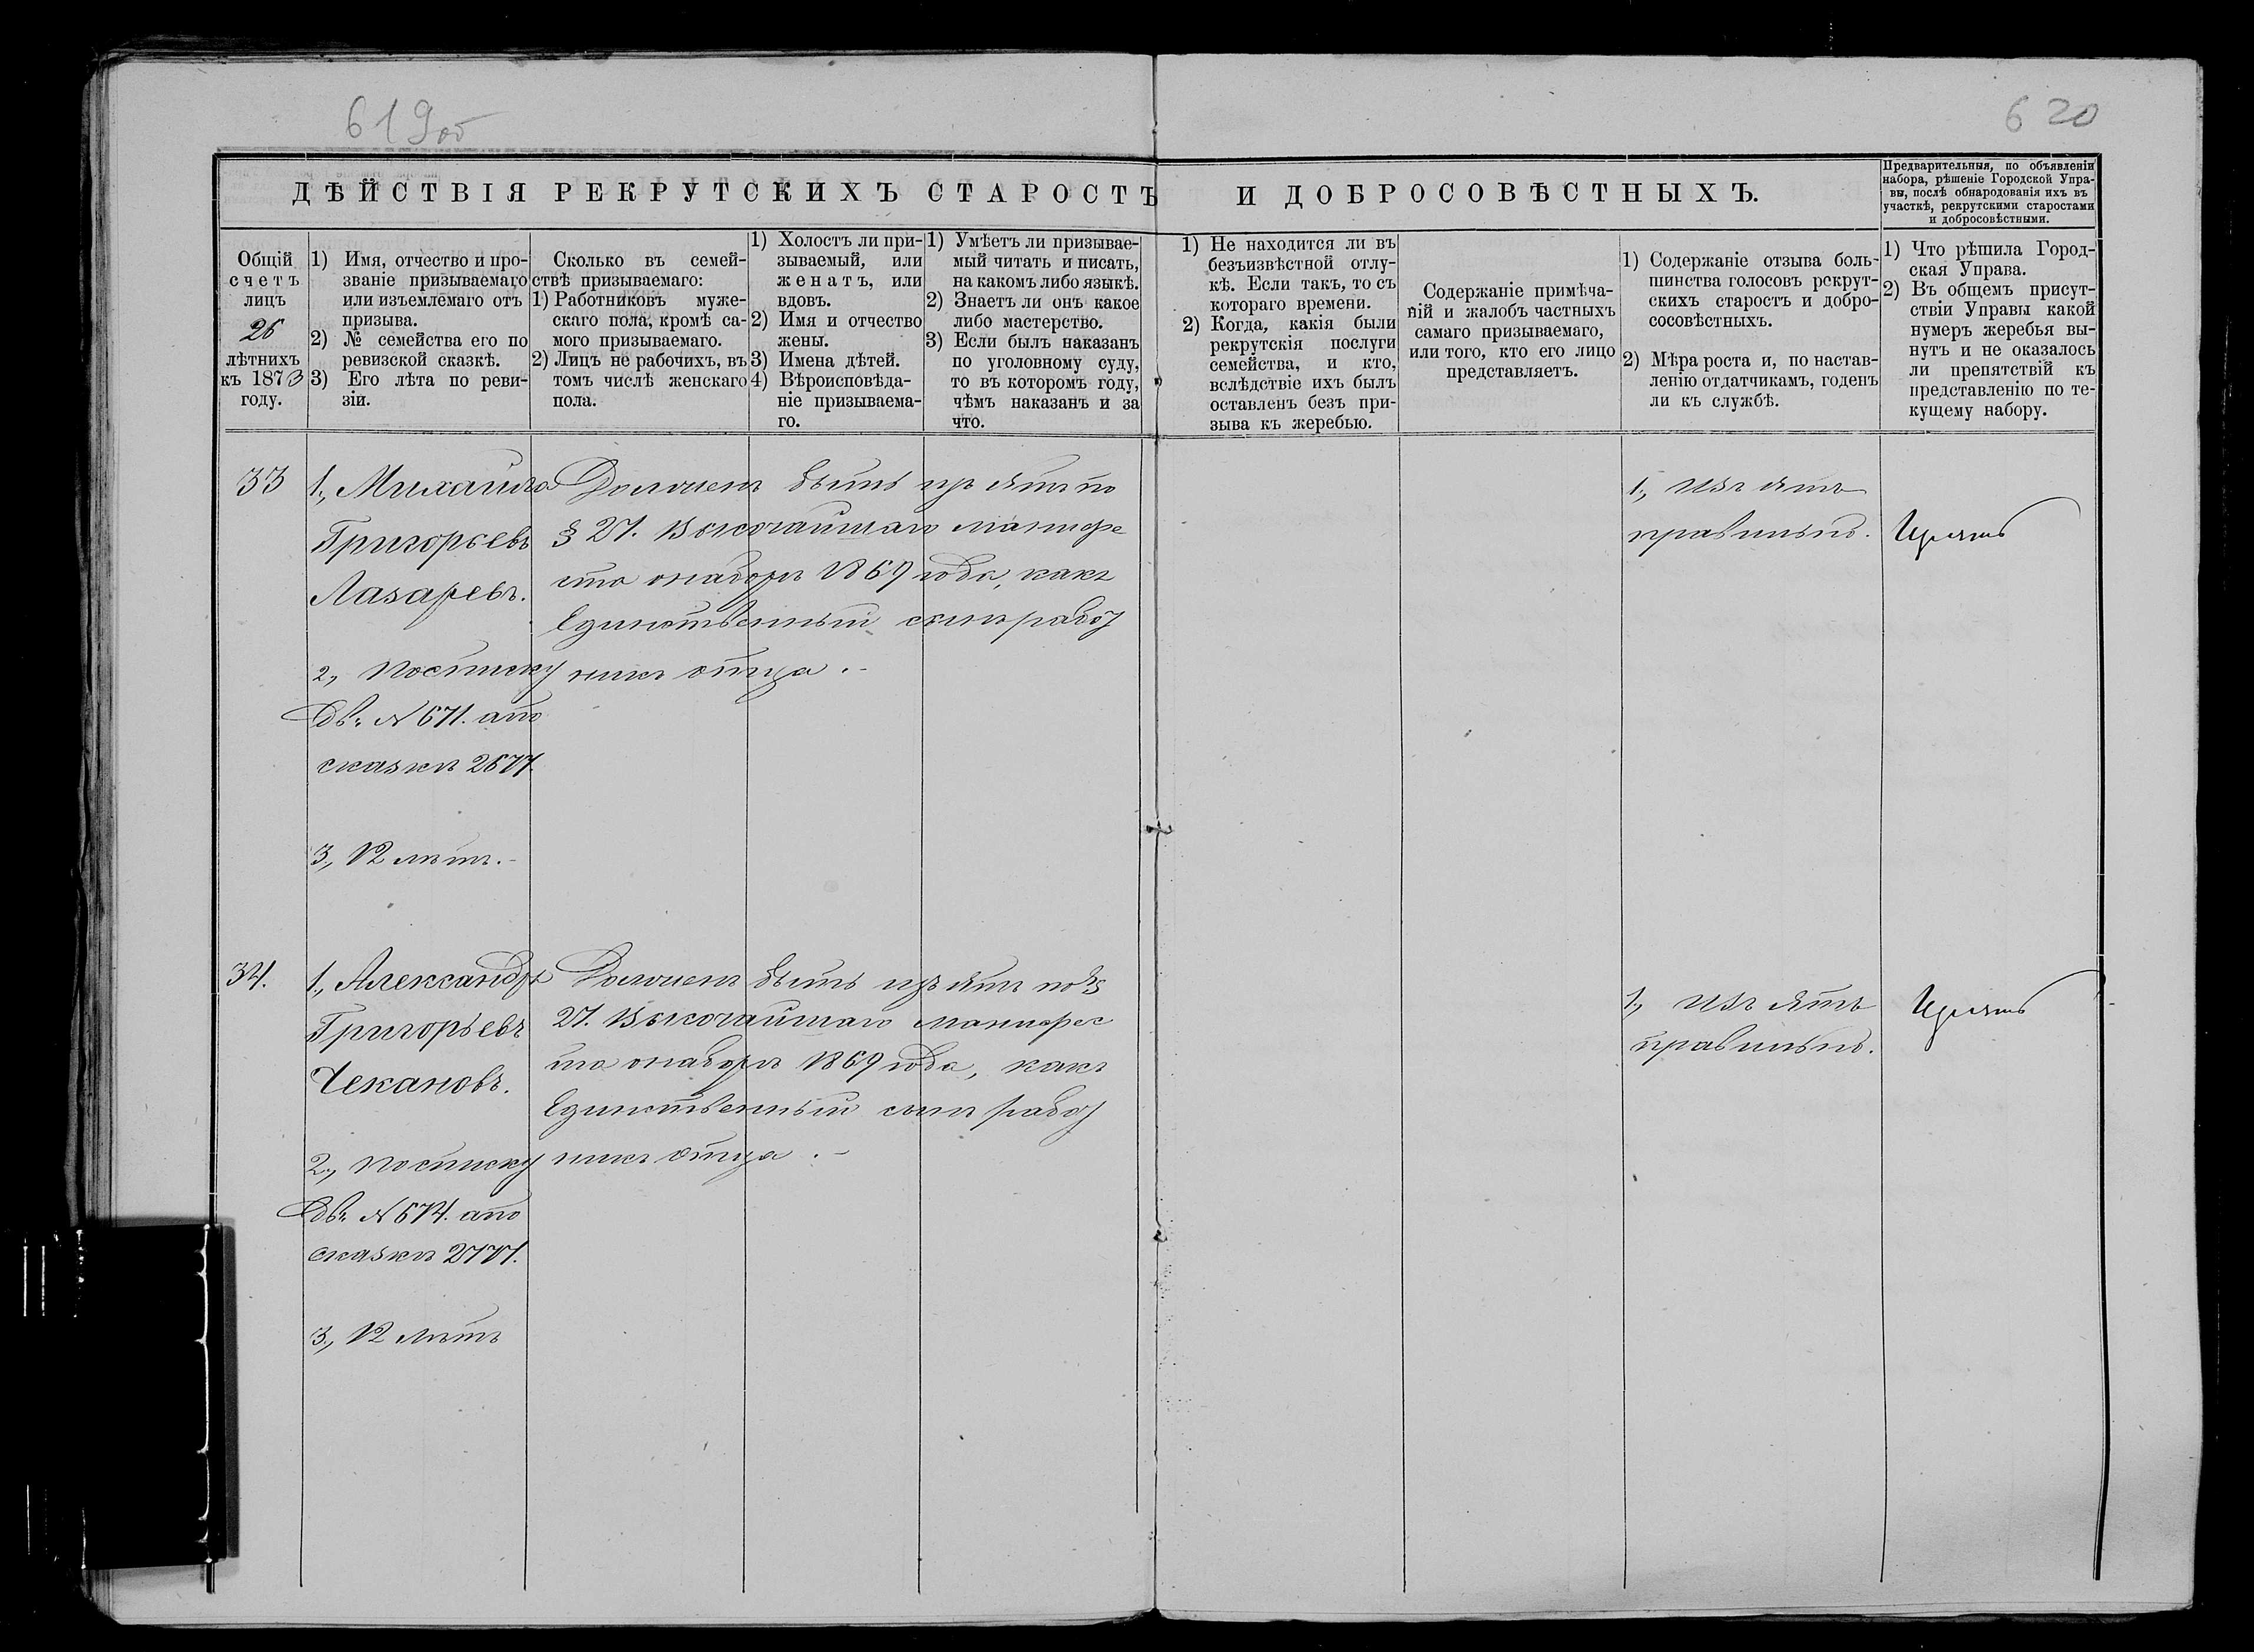 619 об
620
ДѢЙСТВІЯ РЕКРУТСКИХЪ СТАРОСТЪ И ДОБРОСОВѢСТНЫХЪ.
Предварительныя, по объявленіи
набора, рѣшеніе Городской Упра-
вы, послѣ обнародованія ихъ въ
участкѣ, рекрутскими старостами
и добросовѣстными.
Общій
счетъ
лицъ
26
лѣтнихъ
къ 1873
году.
1) Имя, отчество и про-
званіе призываемаго
или изъемлемаго отъ
призыва.
2) № семейства его по
ревизской сказкѣ.
3) Его лѣта по реви-
зіи.
Сколько въ семей-
ствѣ призываемаго:
1) Работниковъ муже-
скаго пола, кромѣ са-
мого призываемаго.
2) Лицъ не рабочихъ, въ
томъ числѣ женскаго
пола.
1) Холостъ ли при-
зываемый, или
женатъ, или
вдовъ.
2) Имя и отчество
жены.
3) Имена дѣтей.
4) Вѣроисповѣда-
ніе призываема-
го.
1) Умѣетъ ли призывае-
мый читать и писать,
на какомъ либо языкѣ.
2) Знаетъ ли онъ какое
либо мастерство.
3) Если былъ наказанъ
по уголовному суду,
то въ которомъ году,
чѣмъ наказанъ и за
что.
1) Не находится ли въ
безъизвѣстной отлу-
кѣ. Если такъ, то съ
котораго времени.
2) Когда, какія были
рекрутскія послуги
семейства, и кто,
вслѣдствіе ихъ былъ
оставленъ безъ при-
зыва къ жеребью.
Содержаніе примѣча-
ній и жалобъ частныхъ
самаго призываемаго,
или того, кто его лицо
представляетъ.
1) Содержаніе отзыва боль-
шинства голосовъ рекрут-
скихъ старостъ и добро-
сосовѣстныхъ.
2) Мѣра роста и, по настав-
ленію отдатчикамъ, годенъ
ли къ службѣ.
1) Что рѣшила Город-
ская Управа.
2) Въ общемъ присут-
ствіи Управы какой
нумеръ жеребья вы-
нутъ и не оказалось
ли препятствій къ
представленію по те-
кущему набору.
33
1., Михаило
Григорьевъ
Лазаревъ.
2., По списку
Дв: № 671. а по
сказкѣ 2677.
3., 12 лѣтъ.
Долженъ быть изъятъ по
§ 27. Высочайшаго манифе
ста о наборѣ 1869 года, какъ
единственный сынъ работ
никъ отца.
1., Изъятъ
правильно.
Изъять
34.
1., Александръ
Григорьевъ
Чекановъ.
2., По списку
Дв: № 674. а по
сказкѣ
3., 12 лѣтъ
Долженъ быть изъятъ по §
27. Высочайшаго манифес
та о наборѣ 1869 года, какъ
единственный сынъ работ
никъ отца.
1., Изъятъ
правильно.
Изъять